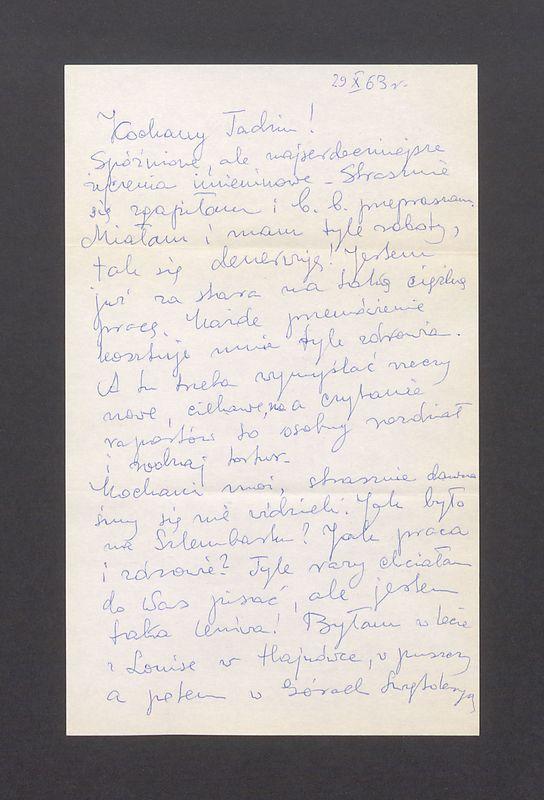 29 X 63 r.
Kochany Tadziu!
Spóźnione, ale najserdeczniejsze
życzenia imieninowe – Strasznie
się zgapiłam i b. b. przepraszam.
Miałam i mam tyle roboty,
tak się denerwuję! Jestem
już za stara na taką ciężką
pracę. Każde przemówienie
kosztuje mnie tyle zdrowia.
A tu trzeba wymyślać rzeczy
nowe, ciekawe, no a czytanie
raportów to osobny rozdział
i rodzaj tortur –
Kochani moi, strasznie dawno
śmy się nie widzieli. Jak było
na Szlembarku? Jak praca
i zdrowie? Tyle razy chciałam
do Was pisać, ale jestem
taka leniwa! Byłam w lecie
z Louise w Hajnówce, w puszczy
a potem w Górach